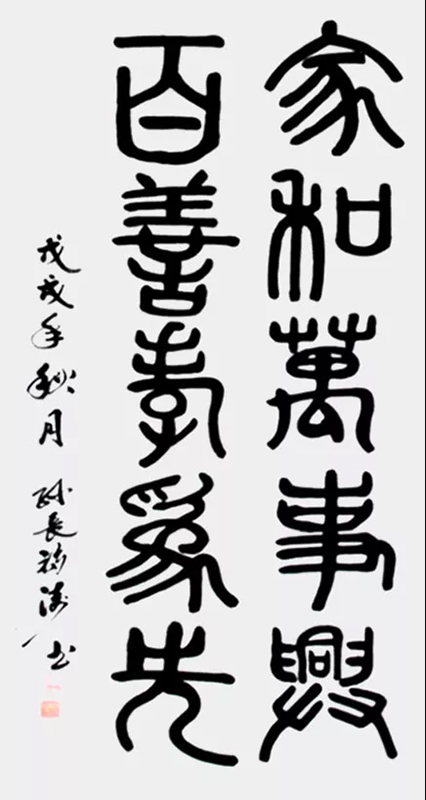 家和萬事興
百善孝為先
戊戌年秋月